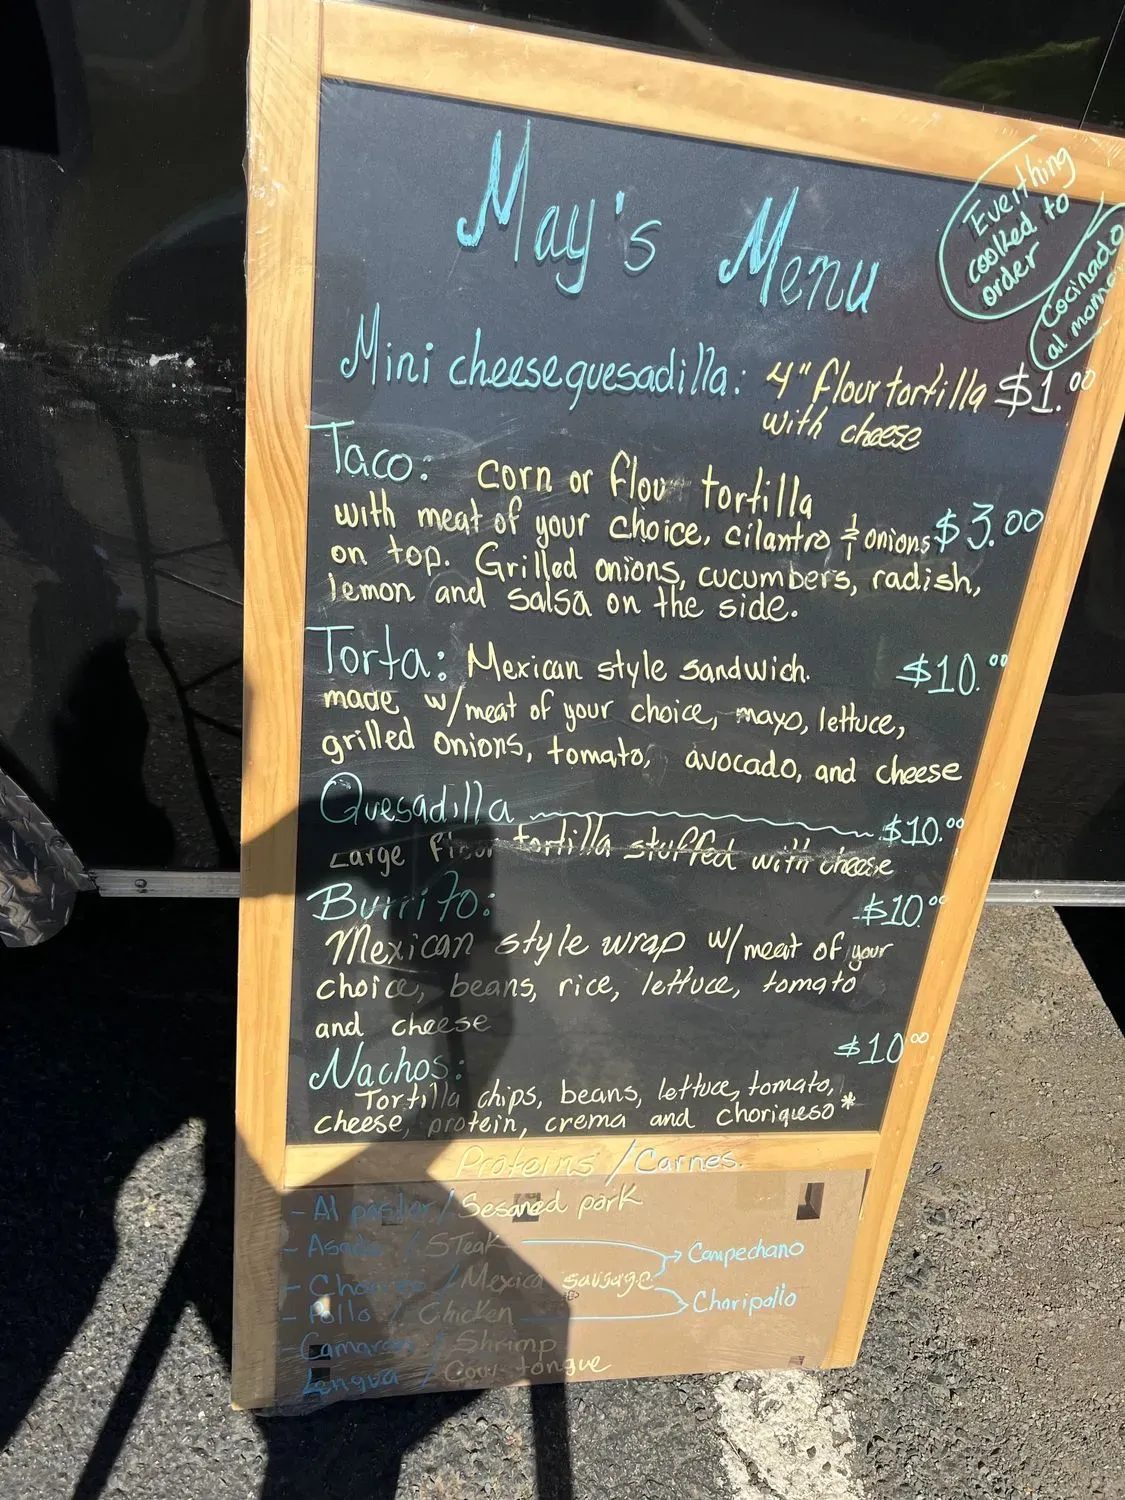 May's Menu
Everthing
cooked to
order
Cocinado
al mome
Mini cheese quesadilla: 4" flour tortilla $1.00
with cheese
Taco: corn or flour tortilla
with meat of your choice, cilantro & onions $3.00
on top. Grilled onions, cucumbers, radish,
lemon and salsa on the side.
Torta: Mexican style sandwich. $10.00
made w/meat of your choice, mayo, lettuce,
grilled onions, tomato, avocado, and cheese
Quesadilla $10.00
Large flour tortilla stuffed with cheese
Burrito: $10.00
Mexican style wrap w/meat of your
choice, beans, rice, lettuce, tomato
and cheese
Nachos: $10.00
Tortilla chips, beans, lettuce, tomato,
cheese, protein, crema and choriqueso*
Proteins / Carnes.
- Al pastor / Sesoned pork
- Asada / STeak → Campechano
- Chorizo / Mexica sausage
- Pollo / Chicken → Choripollo
- Camaron / Shrimp
Lengua / Cow tongue